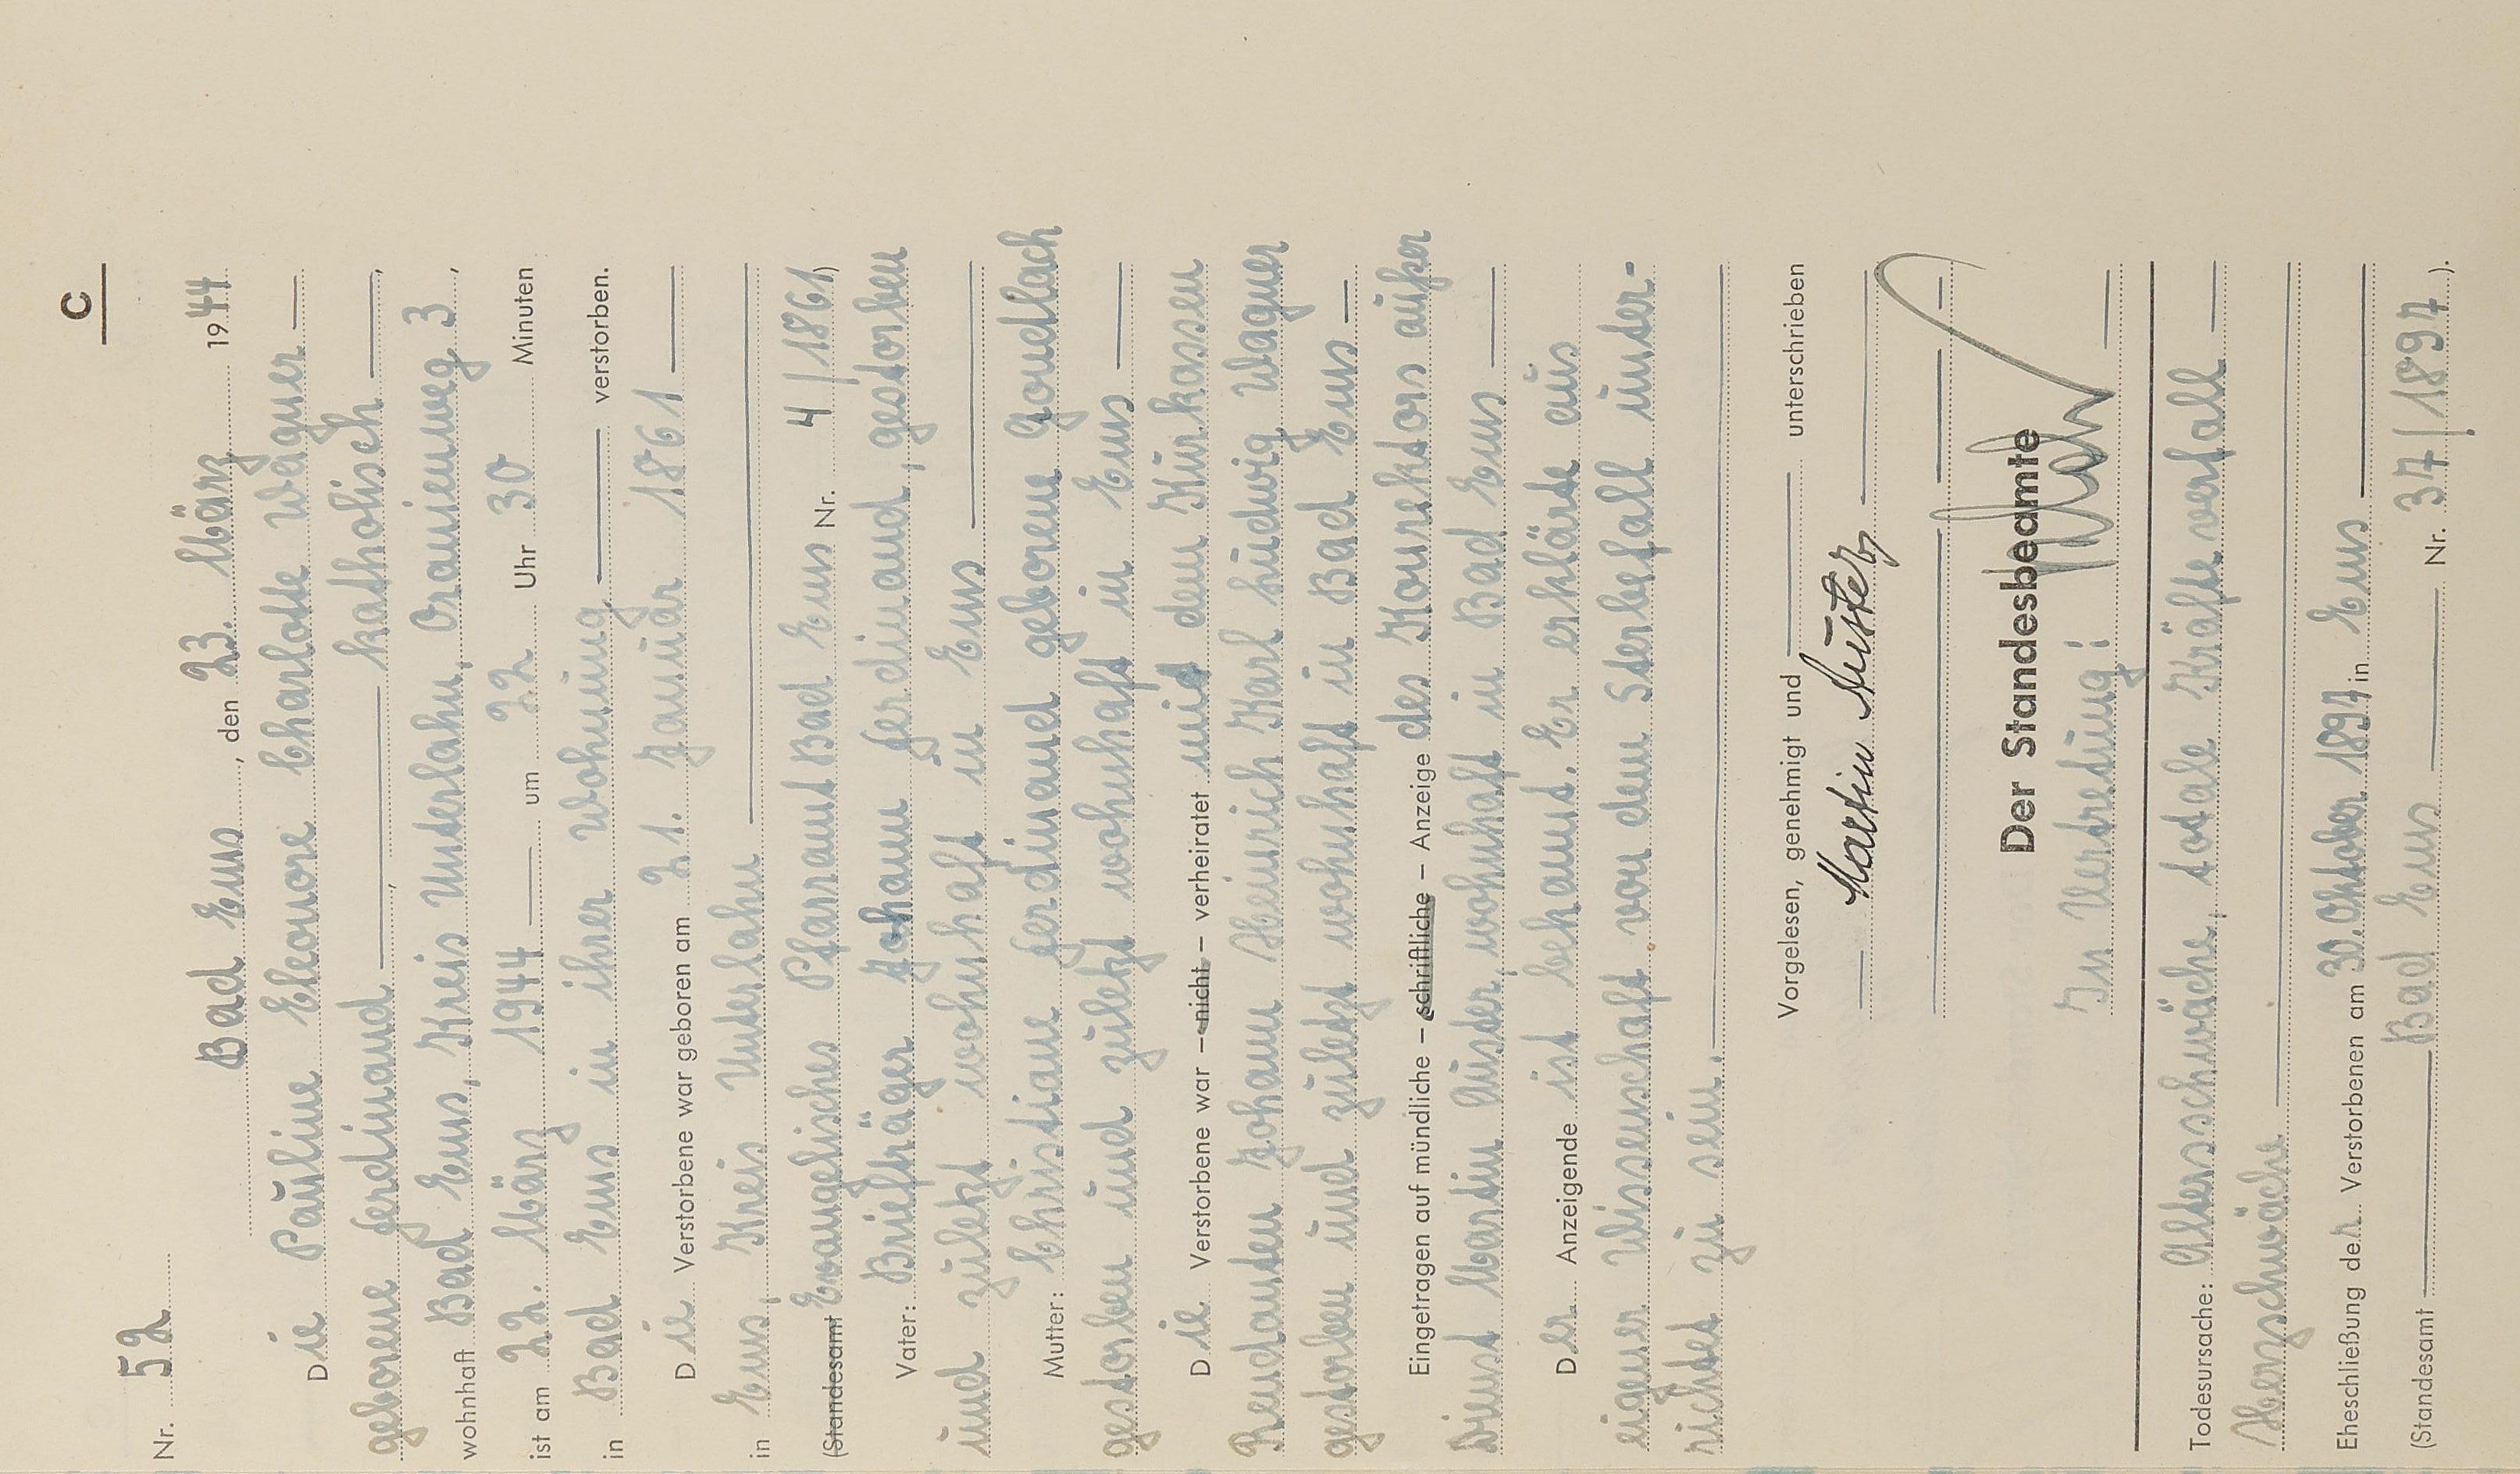 C
Nr. 52
Bad Ems, den 23. März 1944
Die Pauline Eleonore Charlotte Wagner
geborene Ferdinand, katholisch,
wohnhaft Bad Ems, Kreis Unterlahn, Oranienweg 3,
ist am 22. März 1944 um 22 Uhr 30 Minuten
in Bad Ems in ihrer Wohnung verstorben.
Die Verstorbene war geboren am 21. Januar 1861
in Ems, Kreis Unterlahn
(Standesamt Evangelisches Pfarramt Bad Ems Nr. 4/1861)
Vater: Briefträger Johann Ferdinand, gestorben
und zuletzt wohnhaft in Ems
Mutter: Christiane Ferdinand geborene Goudlach
gestorben und zuletzt wohnhaft in Ems
Die Verstorbene war – nicht – verheiratet mit dem Kurkassen
Rendanten Johann Heinrich Karl Ludwig Wagner
gestorben und zuletzt wohnhaft in Bad Ems
Eingetragen auf mündliche – schriftliche – Anzeige des Konrektors außer
Dienst Martin Auster, wohnhaft in Bad Ems
Der Anzeigende ist bekannt. Er erklärte aus
eigener Wissenschaft von dem Sterbefall unter-
richtet zu sein.
Vorgelesen, genehmigt und unterschrieben
Martin Auster
Der Standesbeamte
In Vertretung:
Todesursache: Altersschwäche, totale Kräfteverfall
Herzschwäche
Eheschließung der Verstorbenen am 30. Oktober 1897 in Ems
(Standesamt Bad Ems Nr. 37/1897).